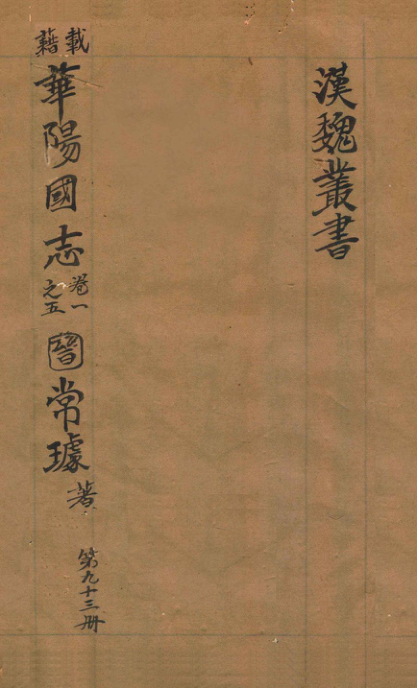 漢魏叢書
載籍
華陽國志
卷一之五
晉
常璩
著
第九十三冊